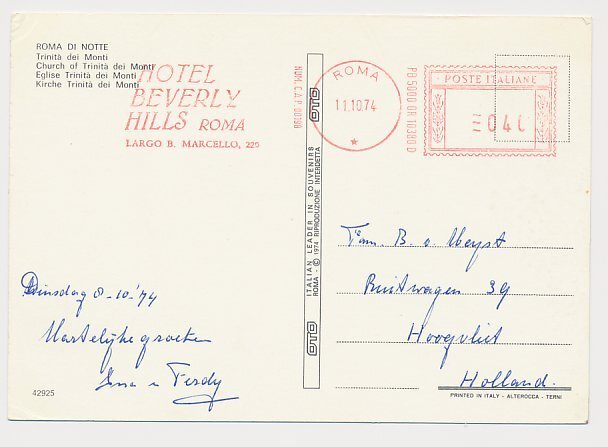 ROMA DI NOTTE
Trinità dei Monti
Church of Trinità dei Monti
Eglise Trinità dei Monti
Kirche Trinità dei Monti
HOTEL
BEVERLY
HILLS ROMA
LARGO B. MARCELLO, 225
NUM. C.A.P. 00198
ROMA
11.10.74
PB 5000 GR 10380 D
POSTE ITALIANE
040
OTO
ITALIAN LEADER IN SOUVENIRS
ROMA - © 1974 RIPRODUZIONE INTERDETTA
OTO
Dinsdag 8-10-'74
Hartelijke groeten
en Ferdy
42925
Fam. B. v. Meyst
39
Hoogvliet
Holland.
PRINTED IN ITALY - ALTEROCCA - TERNI